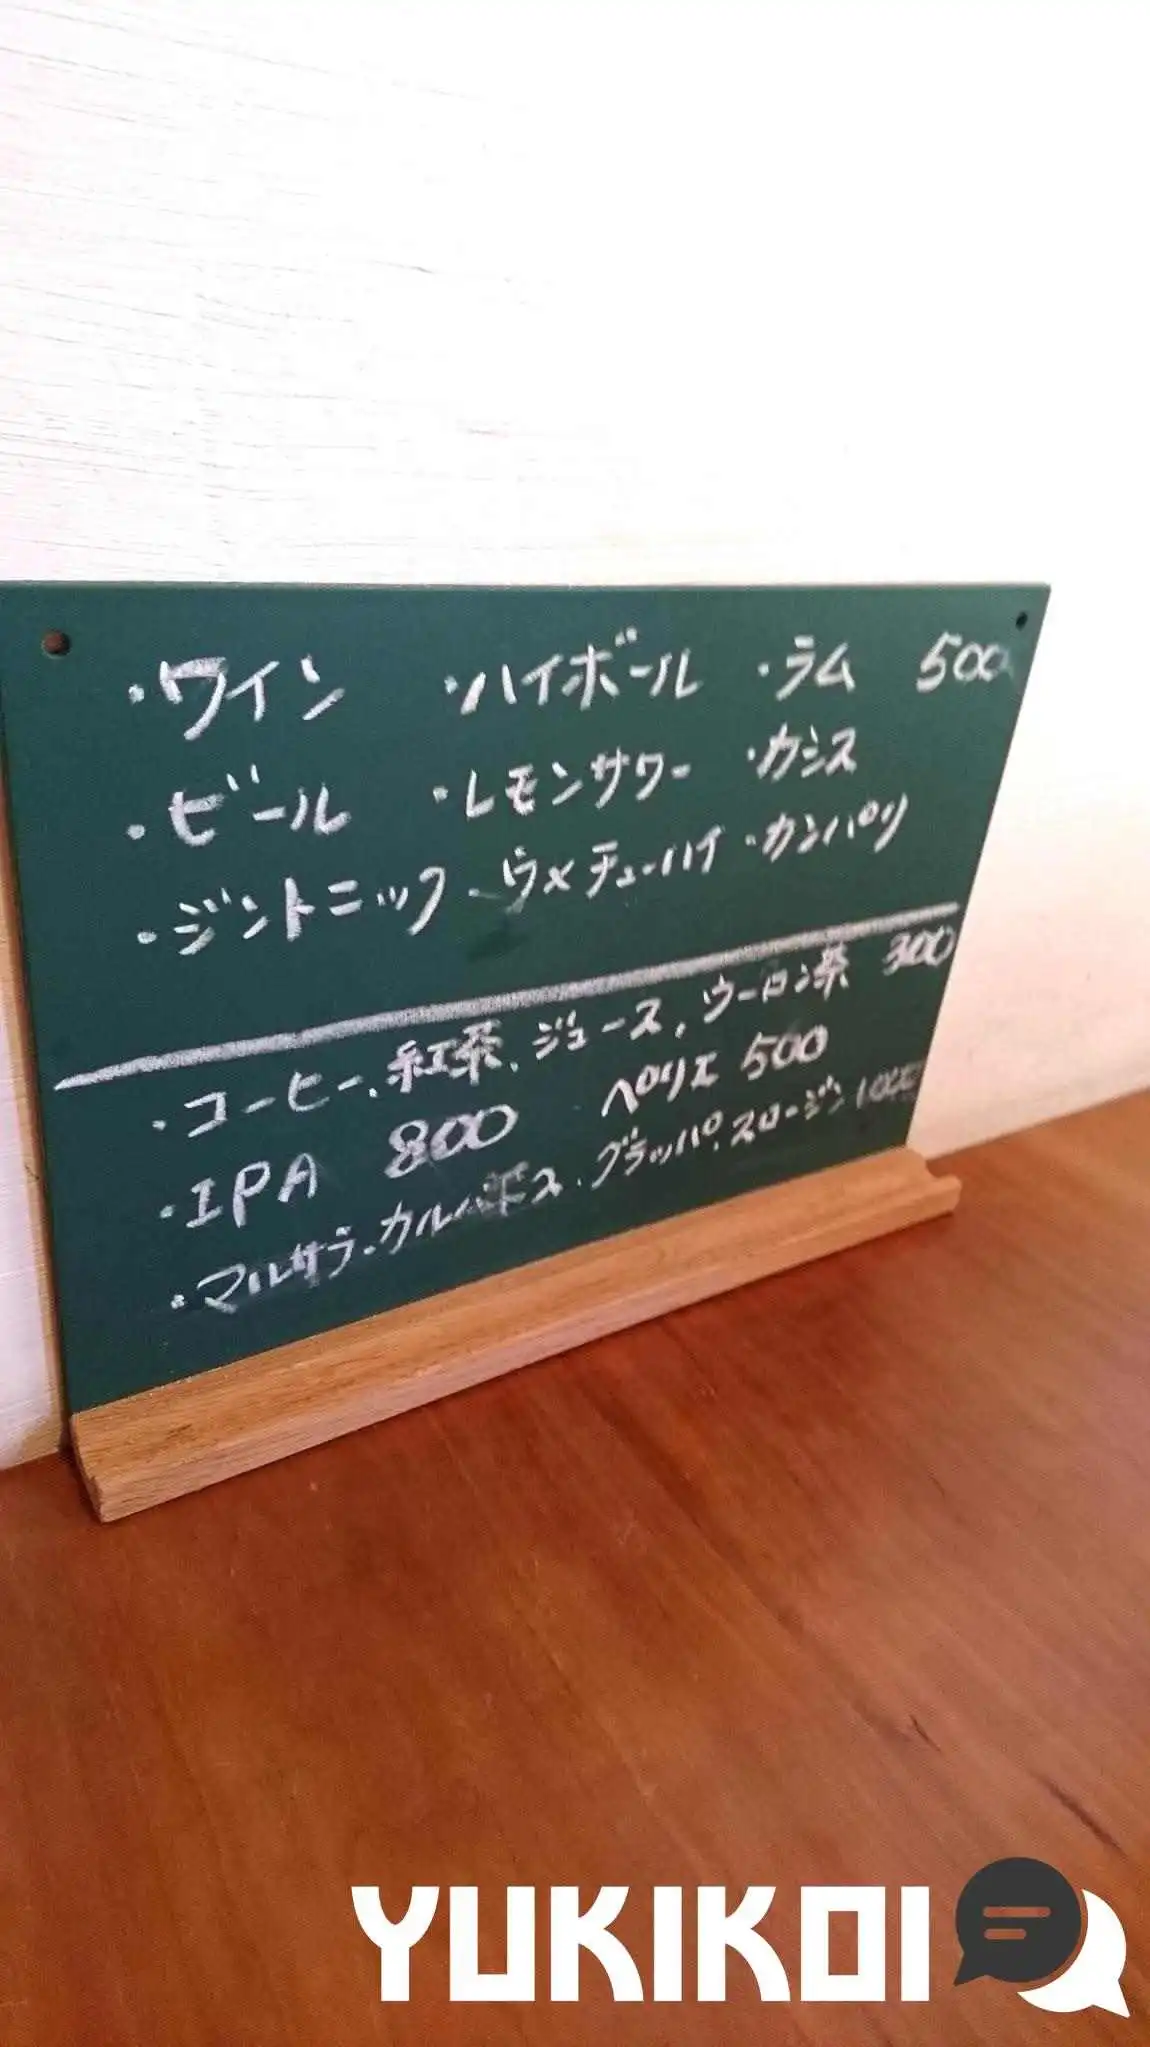 ・ワイン ・ハイボール ・ラム 500
・ビール ・レモンサワー ・カシス
・ジントニック ・ウメチューハイ ・カンパリ
・コーヒー、紅茶、ジュース、ウーロン茶 300
・IPA 800 ペリエ 500
・マルサラ、カルバドス、グラッパ、スロージン
YUKIKOI